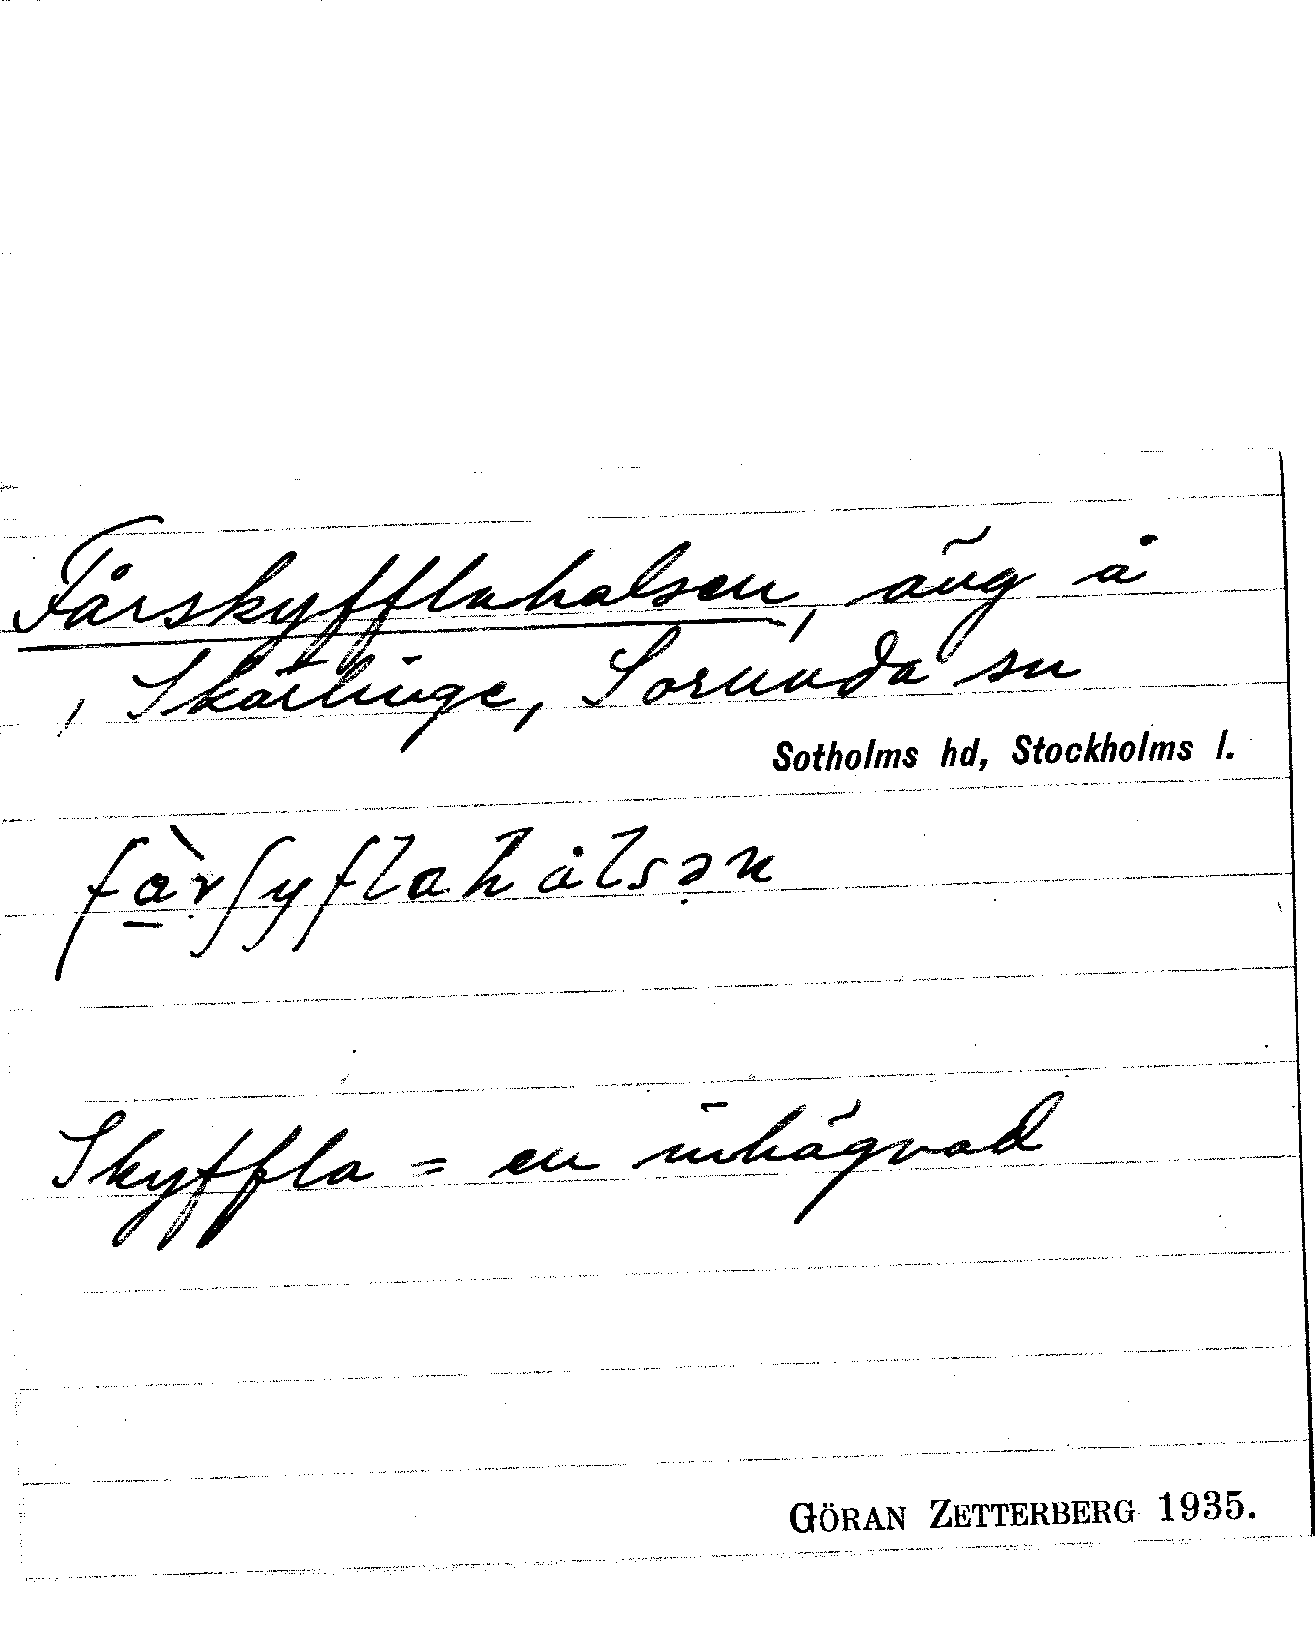 Fårskyfflahalsen, äng å
, Skärlinge, Sorunda sn
Sotholms hd, Stockholms l.
fàrʃyflahalsən
Skyffla = en inhägnad
GÖRAN ZETTERBERG 1935.